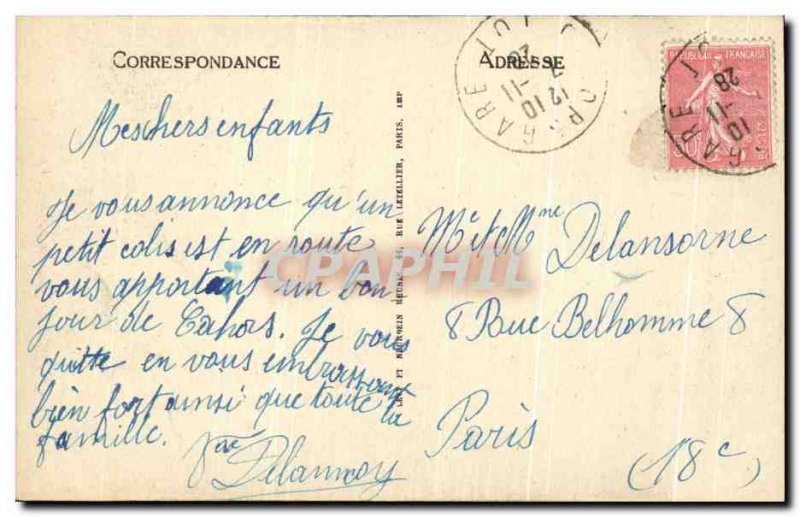 CORRESPONDANCE
Mes chers enfants
Je vous annonce qu'un
petit colis est en route
vous apportant un bon
jour de Cahors. Je vous
quitte en vous embrassant
bien fort ainsi que toute la
famille.
Delannoy
LEVY ET NEURDEIN REUNIS, 44, RUE LETELLIER, PARIS, IMP
ADRESSE
GARE
12 10
10 -11
28
REPUBLIQUE FRANÇAISE
GARE
10 -11
28
Mr et Mme Delansorne
8 Rue Belhomme 8
Paris
(18e)
CPAPHIL